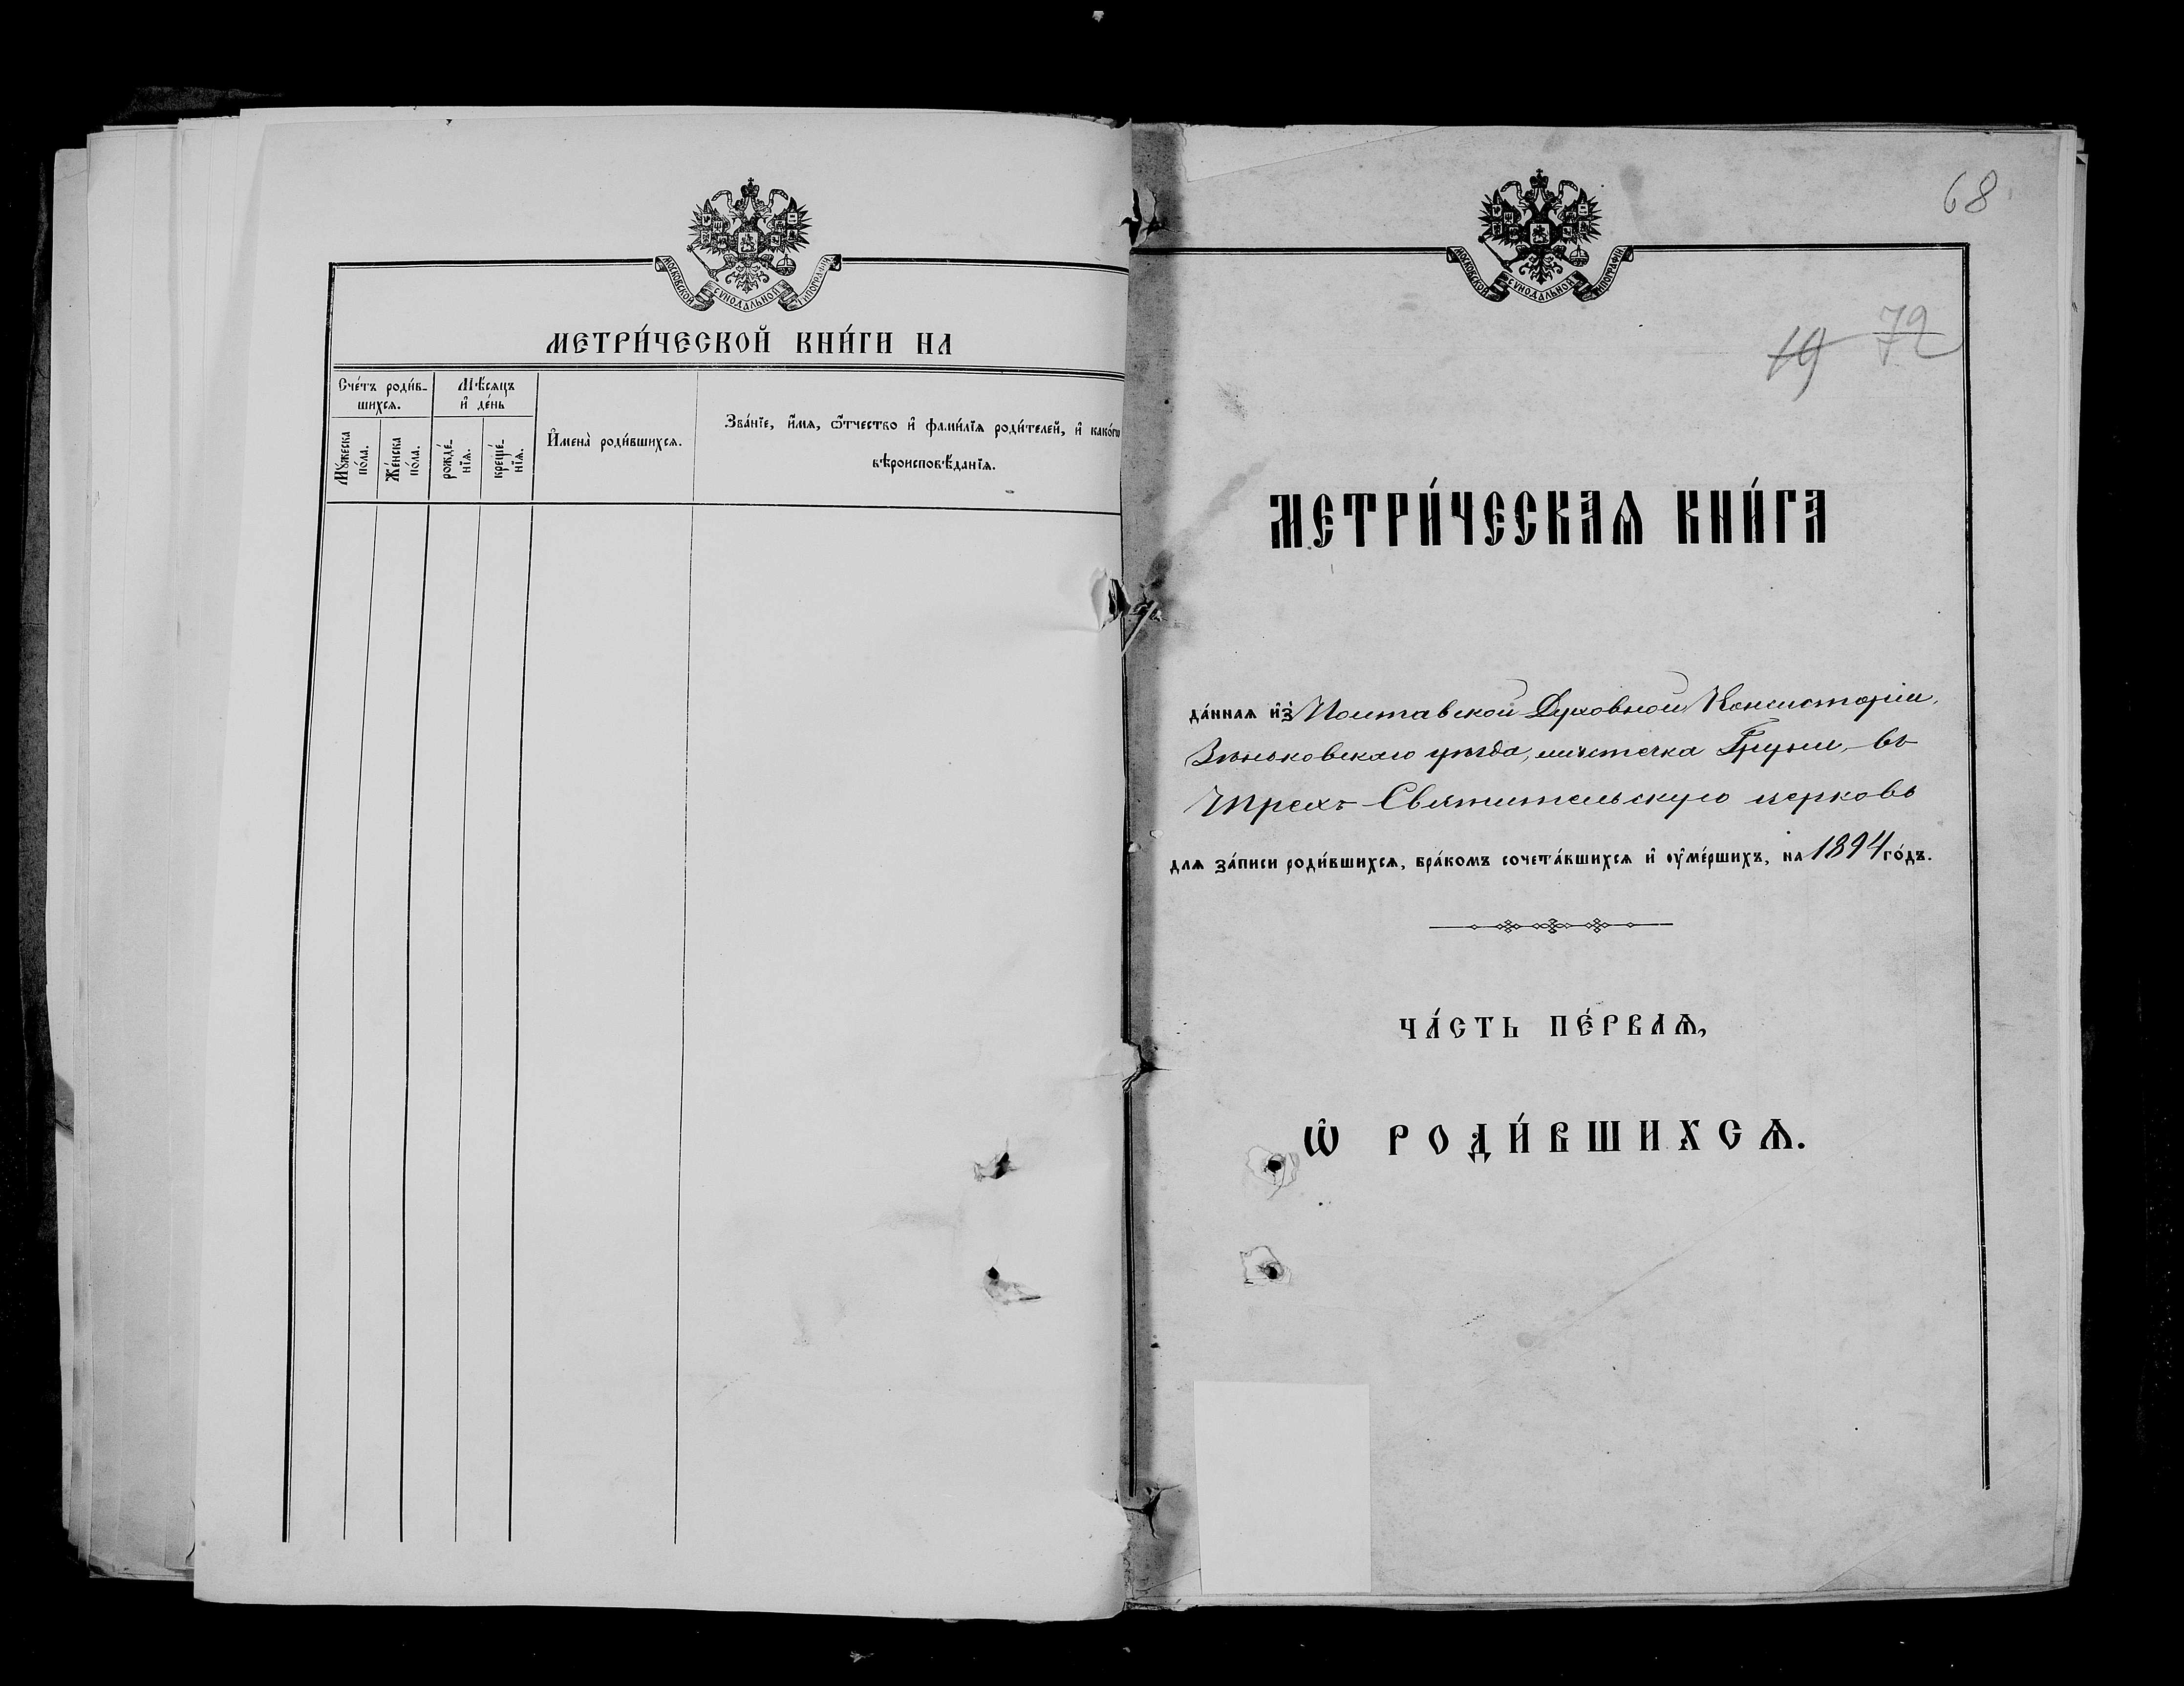 МОСКОВСКОЙ СѴНОДАЛЬНОЙ ТИПОГРАФІИ
МЕТРИ́ЧЕСКОЙ КНИ́ГИ НА
Сче́тъ роди́в-
шихсѧ.
Мѣ́сѧцъ
и҆ де́нь
И҆мена̀ роди́вшихсѧ.
Зва́нїе, и҆́мѧ, ѻ҆́тчество и҆ фами́лїѧ роди́телей, и҆ како́гѡ
вѣроисповѣ́данїѧ.
Мꙋ́жеска
по́ла.
Же́нска
по́ла.
рожде́-
нїѧ.
креще́-
нїѧ.
68
МОСКОВСКОЙ СѴНОДАЛЬНОЙ ТИПОГРАФІИ
19 72
МЕТРИ́ЧЕСКАѦ КНИ́ГА
да́ннаѧ и҆з̾ Полтавской Духовной Консисторіи,
Зѣньковскаго уѣзда, мѣстечка Груни, въ
Трехъ-Святительскую церковь
длѧ за́писи роди́вшихсѧ, бра́комъ сочета́вшихсѧ и҆ ᲂу҆ме́ршихъ, на 1894 го́дъ.
ЧА́СТЬ ПЕ́РВАѦ,
Ѡ҆ РОДИ́ВШИХСѦ.